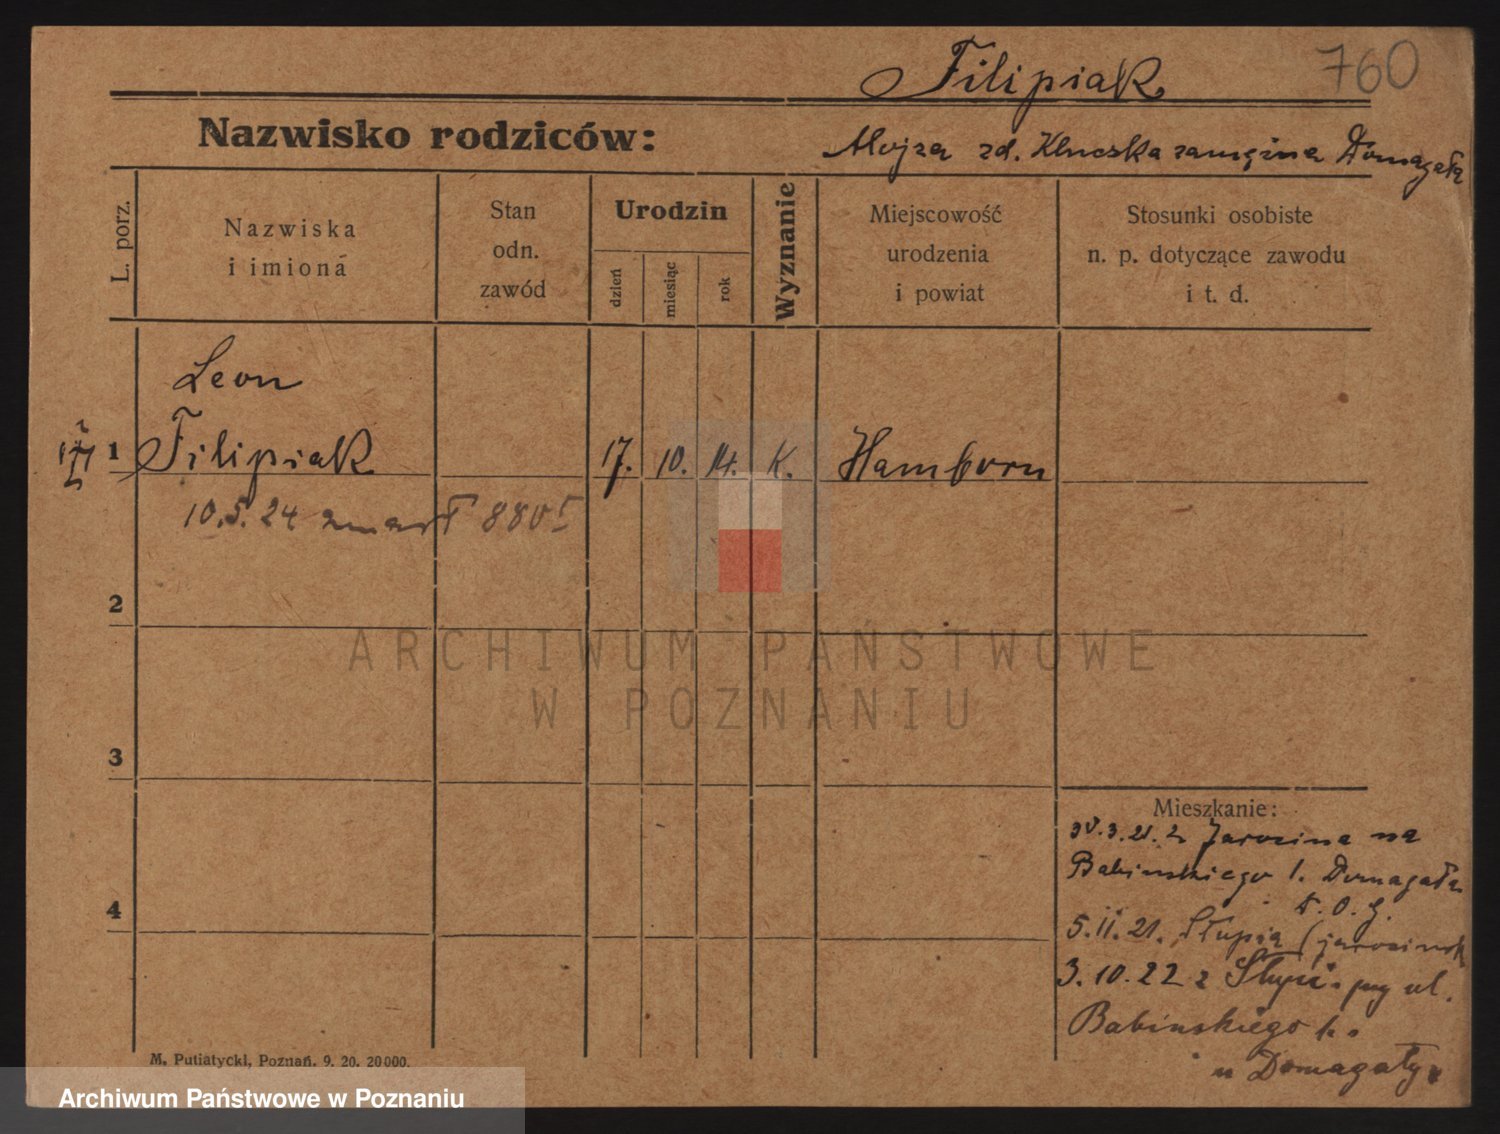 Filipiak 760
Nazwisko rodziców:
Alojza zd. Kluczska zamężna Domagała
L. porz.
Nazwiska
i imiona
Stan
odn.
zawód
Urodzin
dzień
miesiąc
rok
Wyznanie
Miejscowość
urodzenia
i powiat
Stosunki osobiste
n. p. dotyczące zawodu
i t. d.
Leon
1 Filipiak 17. 10. 14. K. Hamborn
10.5.24 zmarł 880
2
ARCHIWUM PAŃSTWOWE
W POZNANIU
3
Mieszkanie:
3.21. z Jarocina na
Babinskiego 1. Domagała
D. O. G.
4
5.11.21. Słupia (jarocinsk
3.10.22 z Słupi. ul.
Babinskiego 1.
u Domagały.
M. Putiatycki, Poznań. 9. 20. 20000.
Archiwum Państwowe w Poznaniu